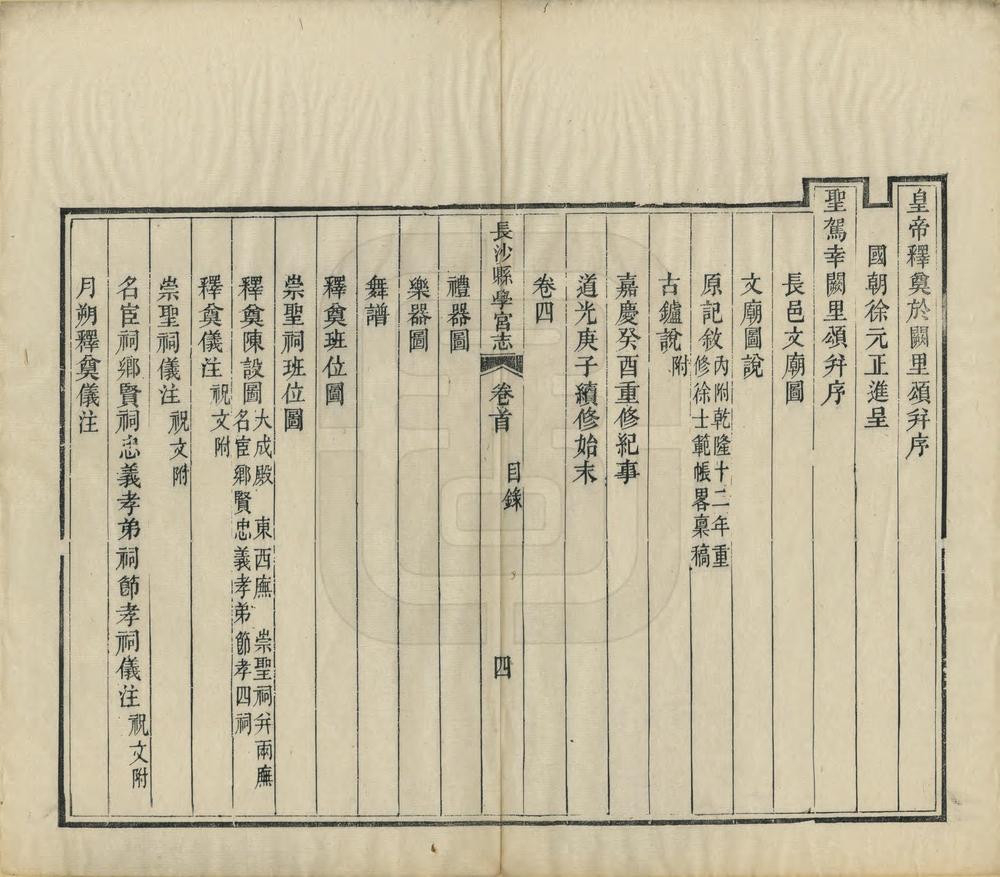 皇帝釋奠於闕里頌幷序
國朝徐元正進呈
聖駕幸闕里頌幷序
長邑文廟圖
文廟圖說
原記敘 丙附乾隆十二年重
修徐士範帳畧稾稿
古鑪說附
嘉慶癸酉重修紀事
道光庚子續修始末
卷四
長沙縣學宮志 卷首 目錄 四
禮器圖
樂器圖
舞譜
釋奠班位圖
崇聖祠班位圖
釋奠陳設圖 大成殿 東西廡 崇聖祠幷兩廡
名宦鄉賢忠義孝弟節孝四祠
釋奠儀注 祝文附
崇聖祠儀注 祝文附
名宦祠鄉賢祠忠義孝弟祠節孝祠儀注 祝文附
月朔釋奠儀注